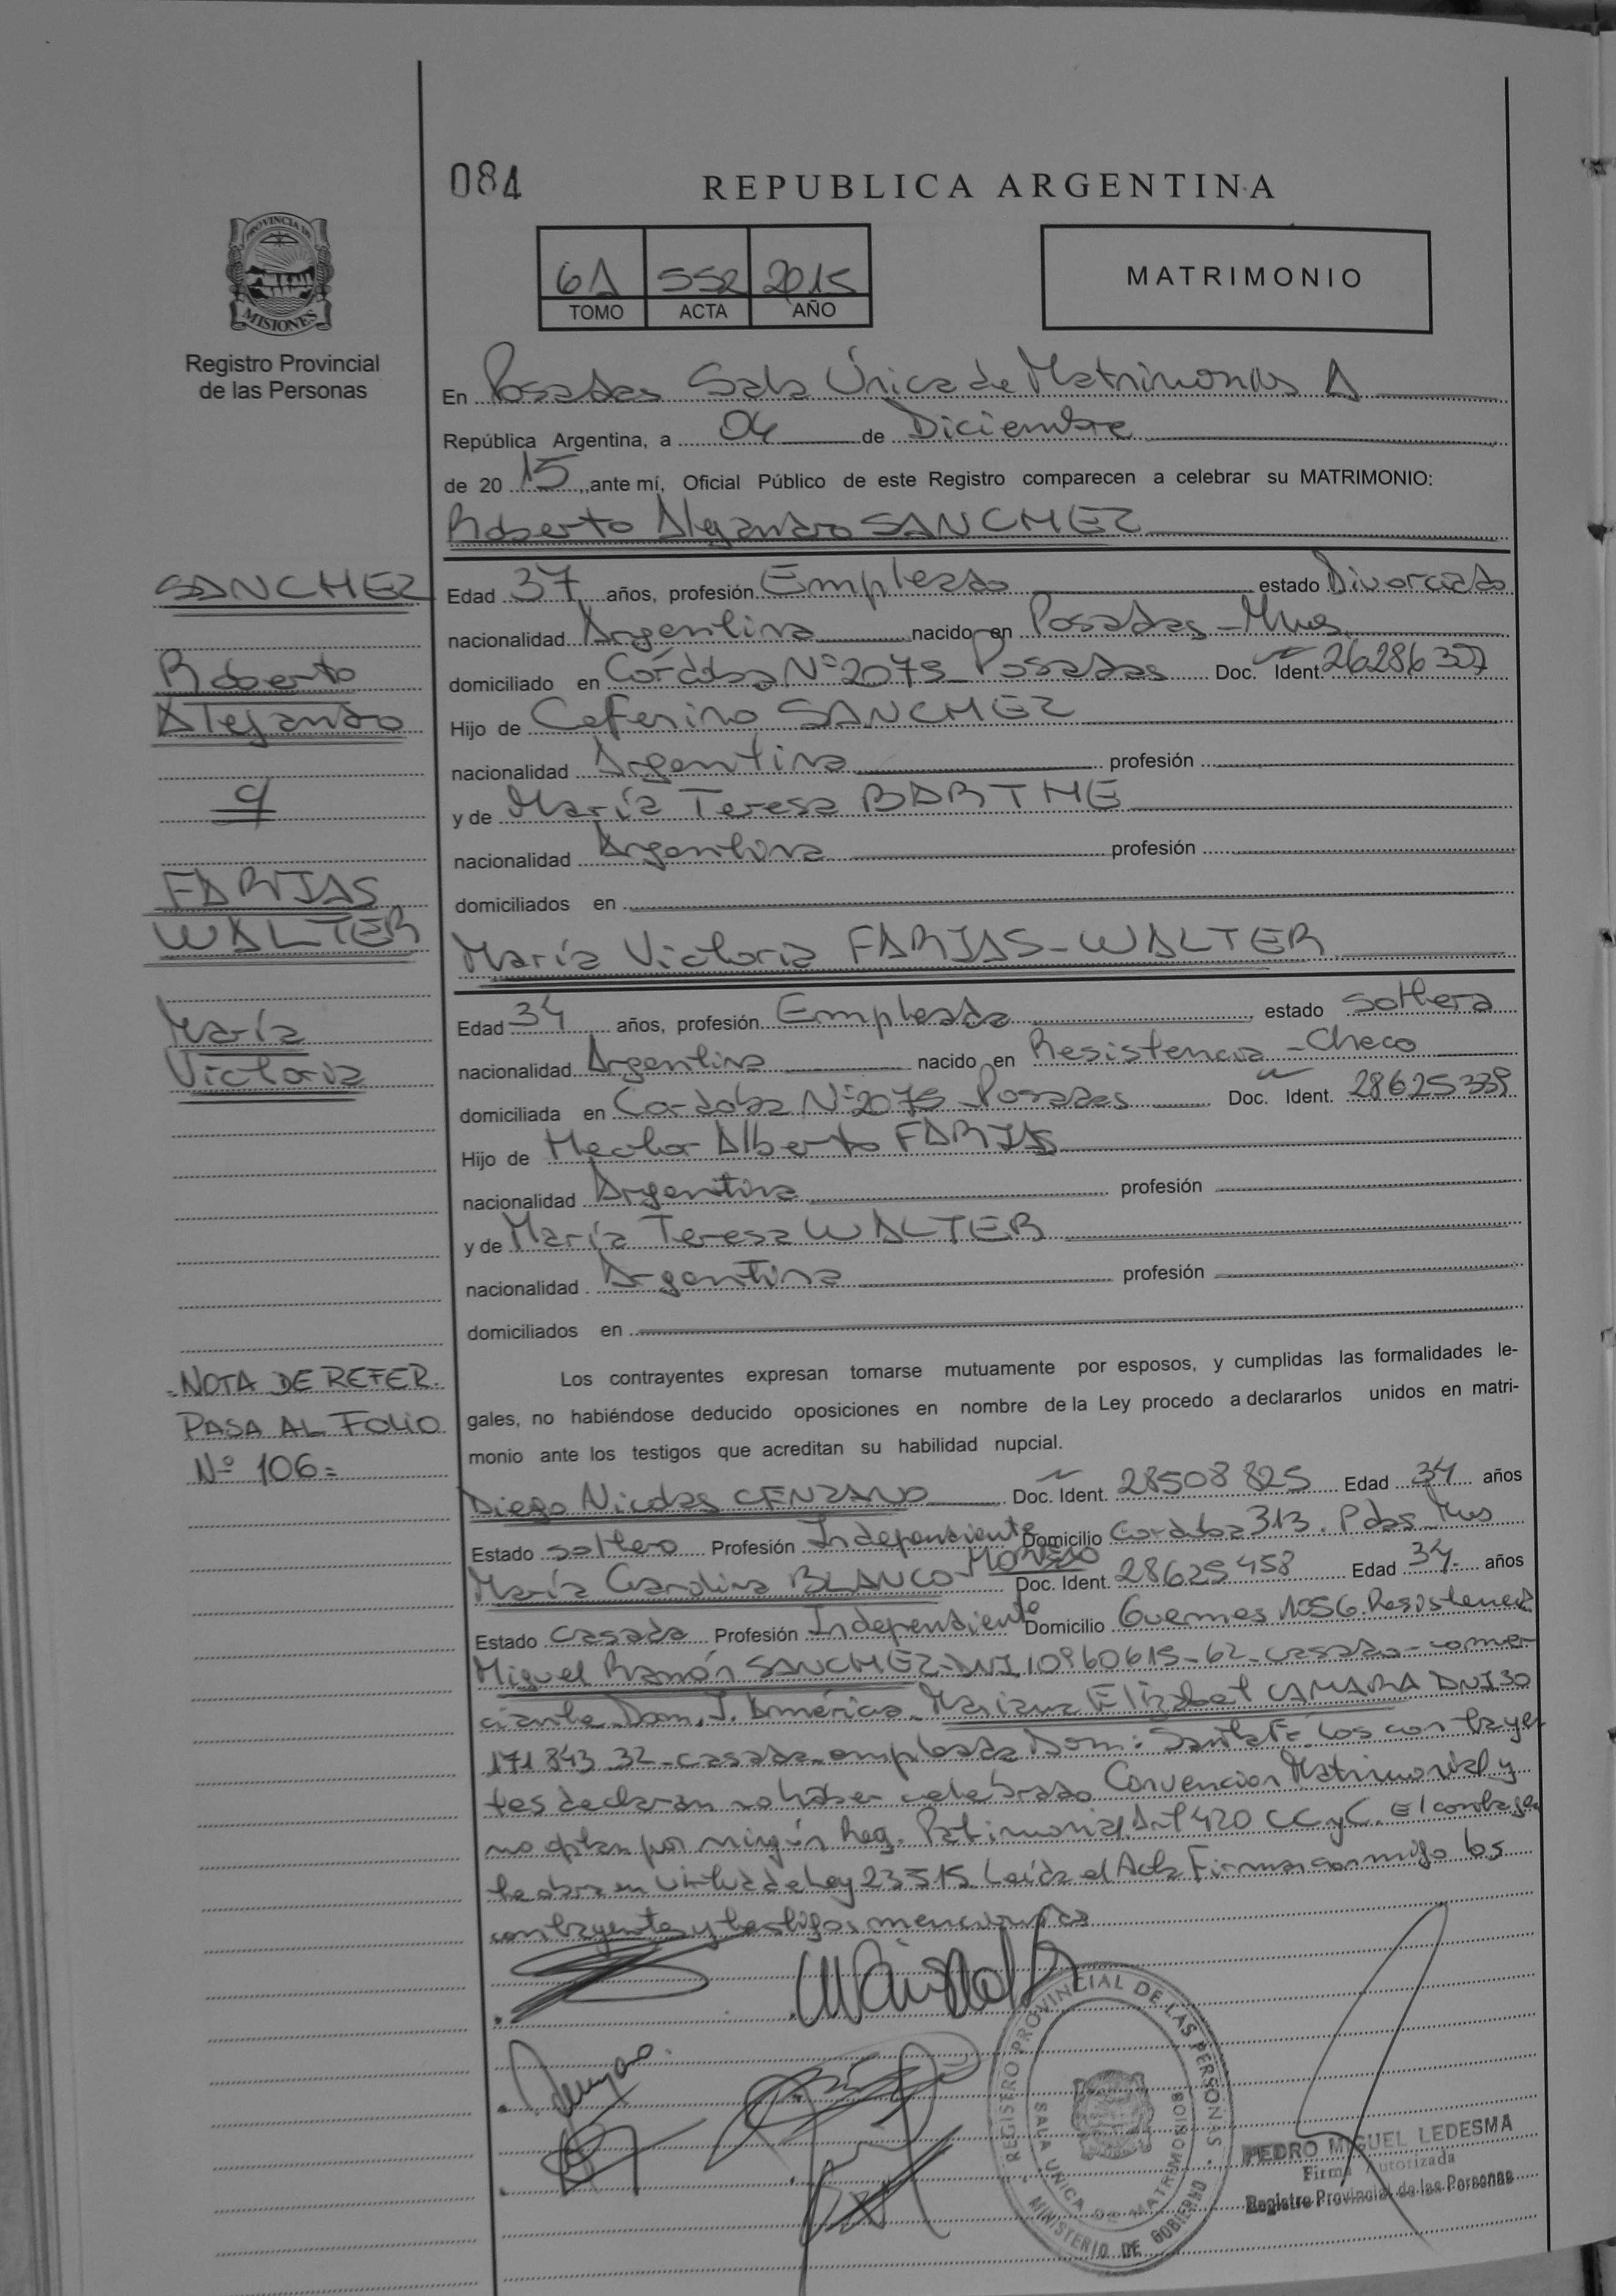 084
REPUBLICA ARGENTINA
PROVINCIA DE
MISIONES
Registro Provincial
de las Personas
61 552 2015
TOMO ACTA AÑO
MATRIMONIO
En Posadas Sala Única de Matrimonios A
República Argentina, a 04 de Diciembre
de 20 15, ante mí, Oficial Público de este Registro comparecen a celebrar su MATRIMONIO:
Roberto Alejandro SANCHEZ
SANCHEZ
Roberto
Alejandro
FARIAS
WALTER
María
Victoria
NOTA DE REFER.
PASA AL FOLIO
Nº 106=
Edad 37 años, profesión Empleado estado Divorciado
nacionalidad Argentina nacido en Posadas - Mnes
domiciliado en Córdoba Nº 2079 Posadas Doc. Ident. 26286327
Hijo de Ceferino SANCHEZ
nacionalidad Argentina profesión
y de María Teresa BARTHE
nacionalidad Argentina profesión
domiciliados en
María Victoria FARIAS-WALTER
Edad 34 años, profesión Empleada estado Soltera
nacionalidad Argentina nacido en Resistencia - Chaco
domiciliada en Cordoba Nº 2079 Posadas Doc. Ident. 28625339
Hijo de Hector Alberto FARIAS
nacionalidad Argentina profesión
y de María Teresa WALTER
nacionalidad Argentina profesión
domiciliados en
Los contrayentes expresan tomarse mutuamente por esposos, y cumplidas las formalidades le-
gales, no habiéndose deducido oposiciones en nombre de la Ley procedo a declararlos unidos en matri-
monio ante los testigos que acreditan su habilidad nupcial.
Diego Nicolas CENZANO Doc. Ident. 28508825 Edad 34 años
Estado soltero Profesión Independiente Domicilio Cordoba 313. Pdas Mns
María Carolina BLANCO MORENO Doc. Ident. 28625458 Edad 34 años
Estado casada Profesión Independiente Domicilio Guemes 1056. Resistencia
Miguel Ramón SANCHEZ-DNI 10960615-62-casado-comer
ciante Dom. J. América. Mariana Elizabet CAMARA DNI 30
171843 32-casada-empleada Dom: Santa Fé. Los contrayen
tes declaran no haber celebrado Convencion Matrimonial y
no optan por ningún Reg. Patrimonial Art 420 CCyC. El contrayen
te obra en virtud de Ley 23515 Leída el Acta Firman conmigo los
contrayentes y testigos mencionados
REGISTRO PROVINCIAL DE LAS PERSONAS
SALA UNICA DE MATRIMONIOS
MINISTERIO DE GOBIERNO
PEDRO MIGUEL LEDESMA
Firma Autorizada
Registro Provincial de las Personas